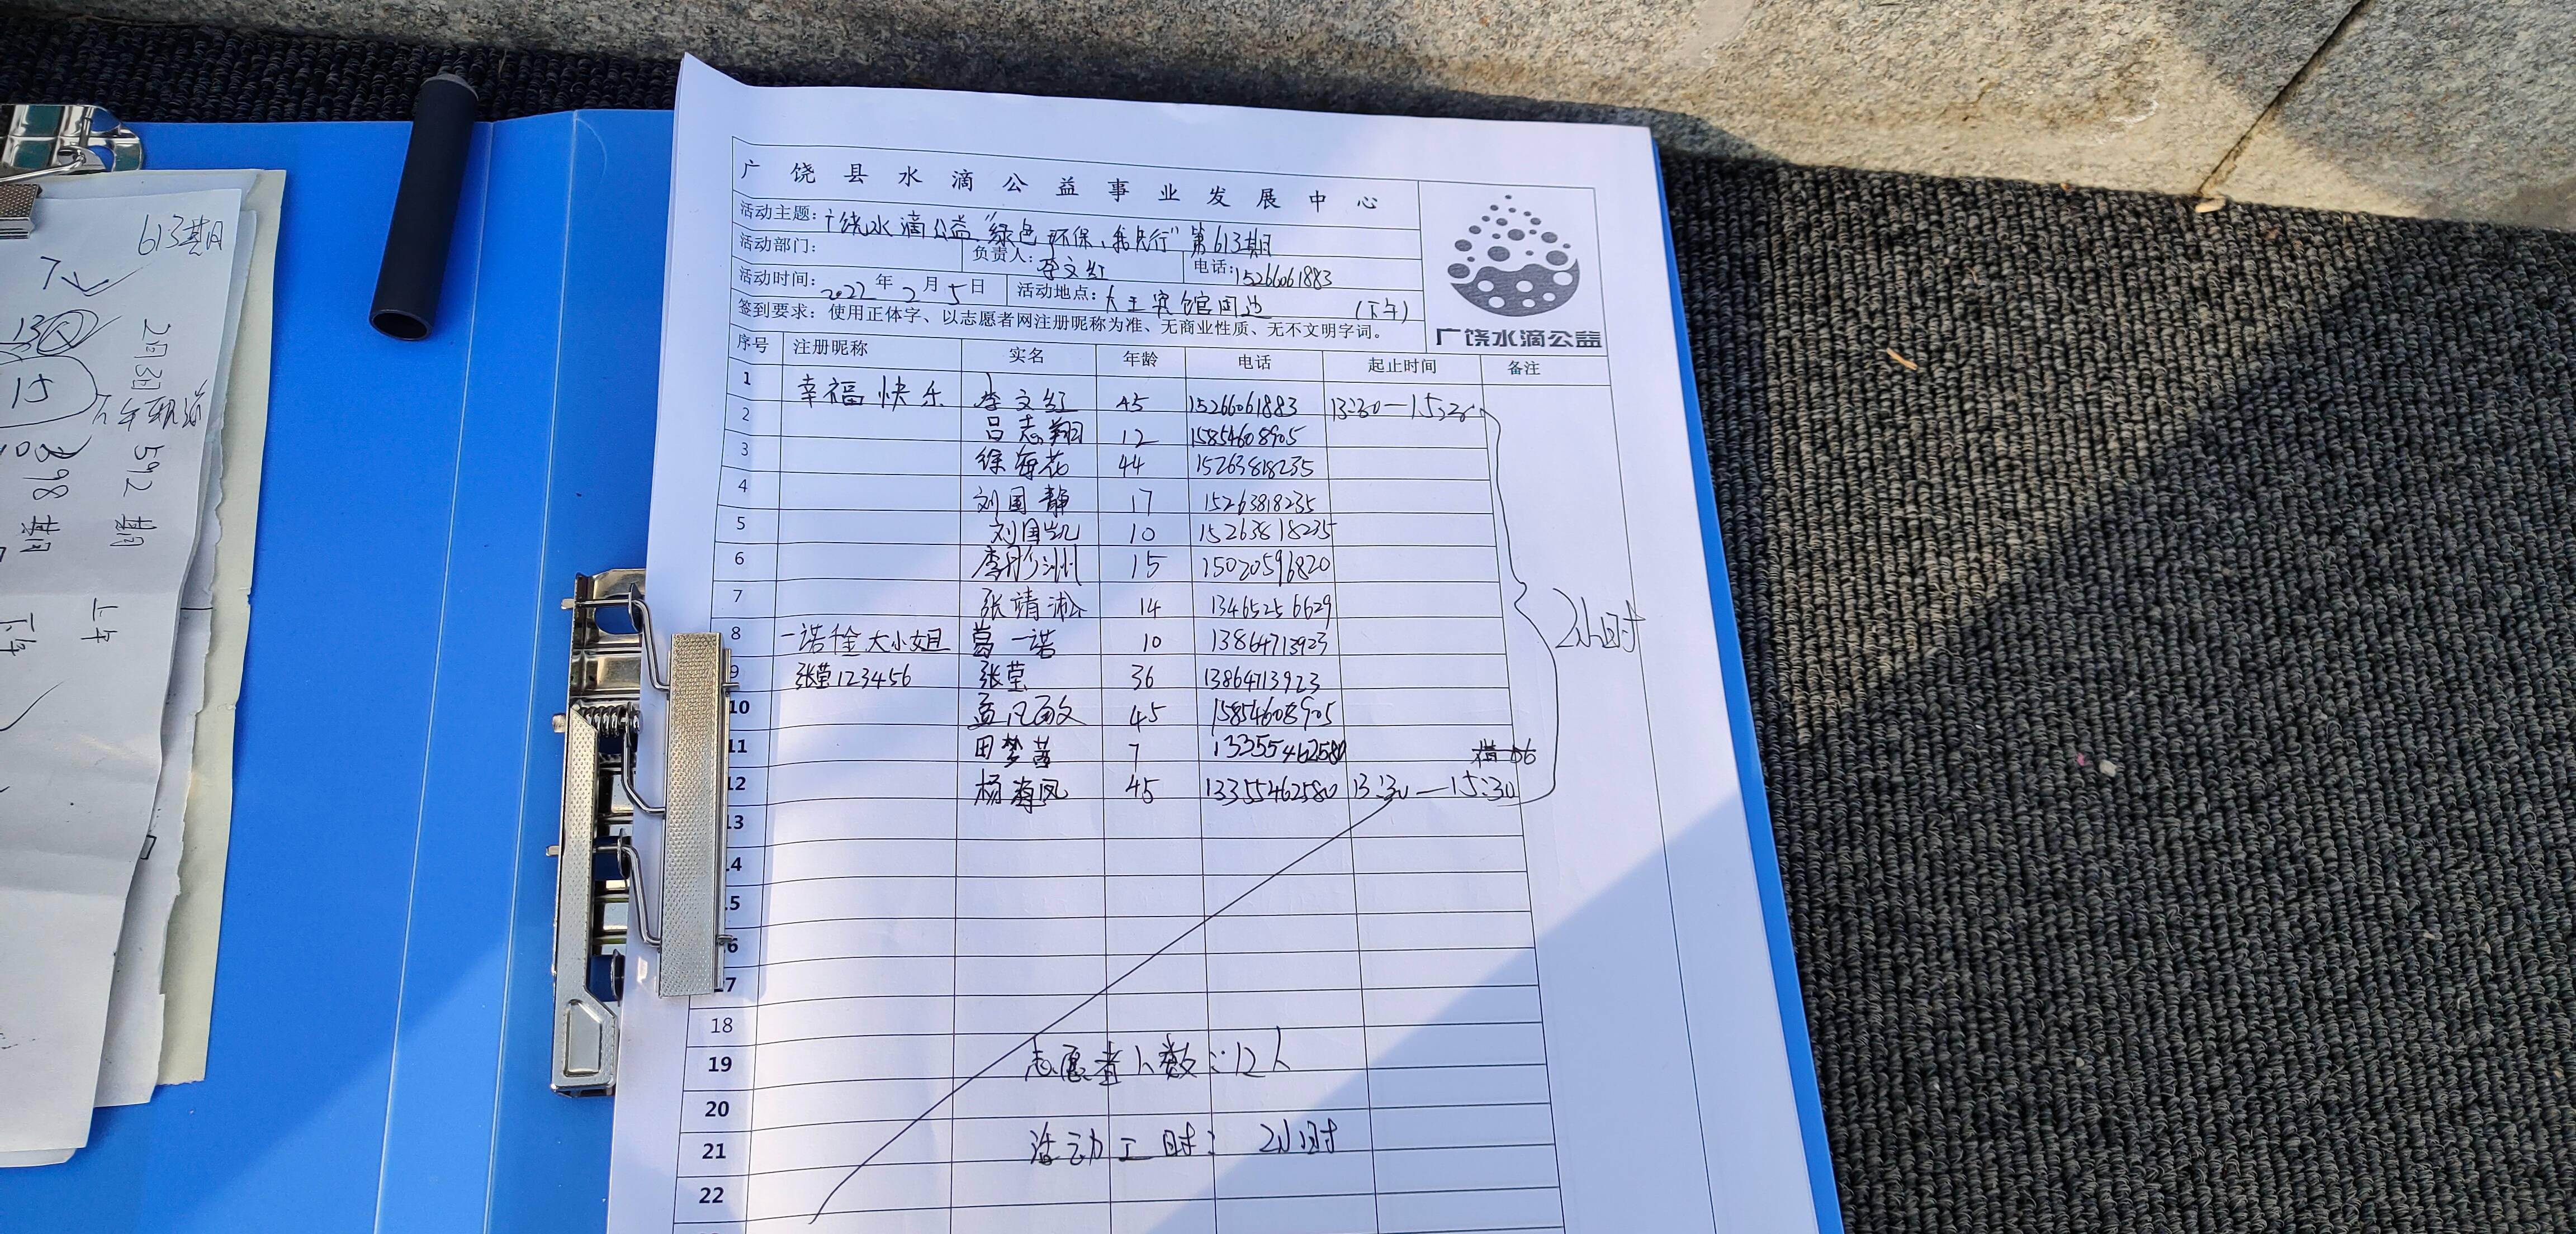 613期
2月3日
592期 上午
598期 下午
15
广饶县水滴公益事业发展中心
活动主题：广饶水滴公益“绿色环保、我先行”第613期
活动部门： 负责人：李文红 电话：15266061883
活动时间：2022年2月5日 活动地点：大王宾馆周边 (下午)
签到要求：使用正体字、以志愿者网注册昵称为准、无商业性质、无不文明字词。
广饶水滴公益
序号 注册昵称 实名 年龄 电话 起止时间 备注
1 幸福快乐 李文红 45 15266061883 13:30—15:30
2 吕志翔 12 15854608905
3 徐海花 44 15263818235
4 刘国静 17 15263818235
5 刘国凯 10 15263818235
6 15 15020596820
7 张靖淞 14 13465256629
8 一诺千金大小姐 葛一诺 10 13864713923
9 张莹123456 张莹 36 13864713923
10 45 15854608905
11 田梦 7 13355462580
12 杨海凤 45 13355462580 13:30—15:30
2小时
13
14
15
16
17
18
19 志愿者人数：12人
20
21 活动工时：2小时
22